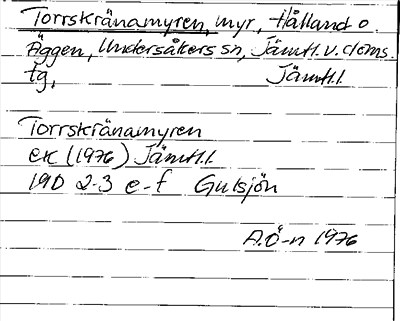 Torrskränamyren, myr, Hålland o.
Äggen, Undersåkers sn, Jämtl. v. doms.
tg, Jämtl. l.
Torrskränamyren
ek (1976) Jämtl. l.
19D 2-3 e-f Gutsjön
A.Ö-n 1976